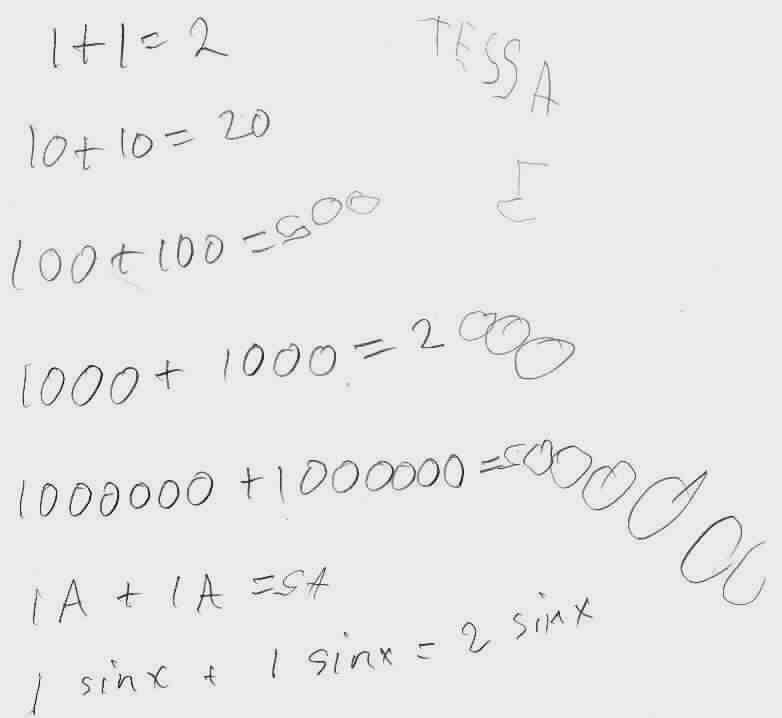 1+1=2
TESSA
10+10=20
5
100+100=500
1000+1000=2000
1000000+1000000=5000000
1A+1A=5A
1 sinx + 1 sinx = 2 sinx